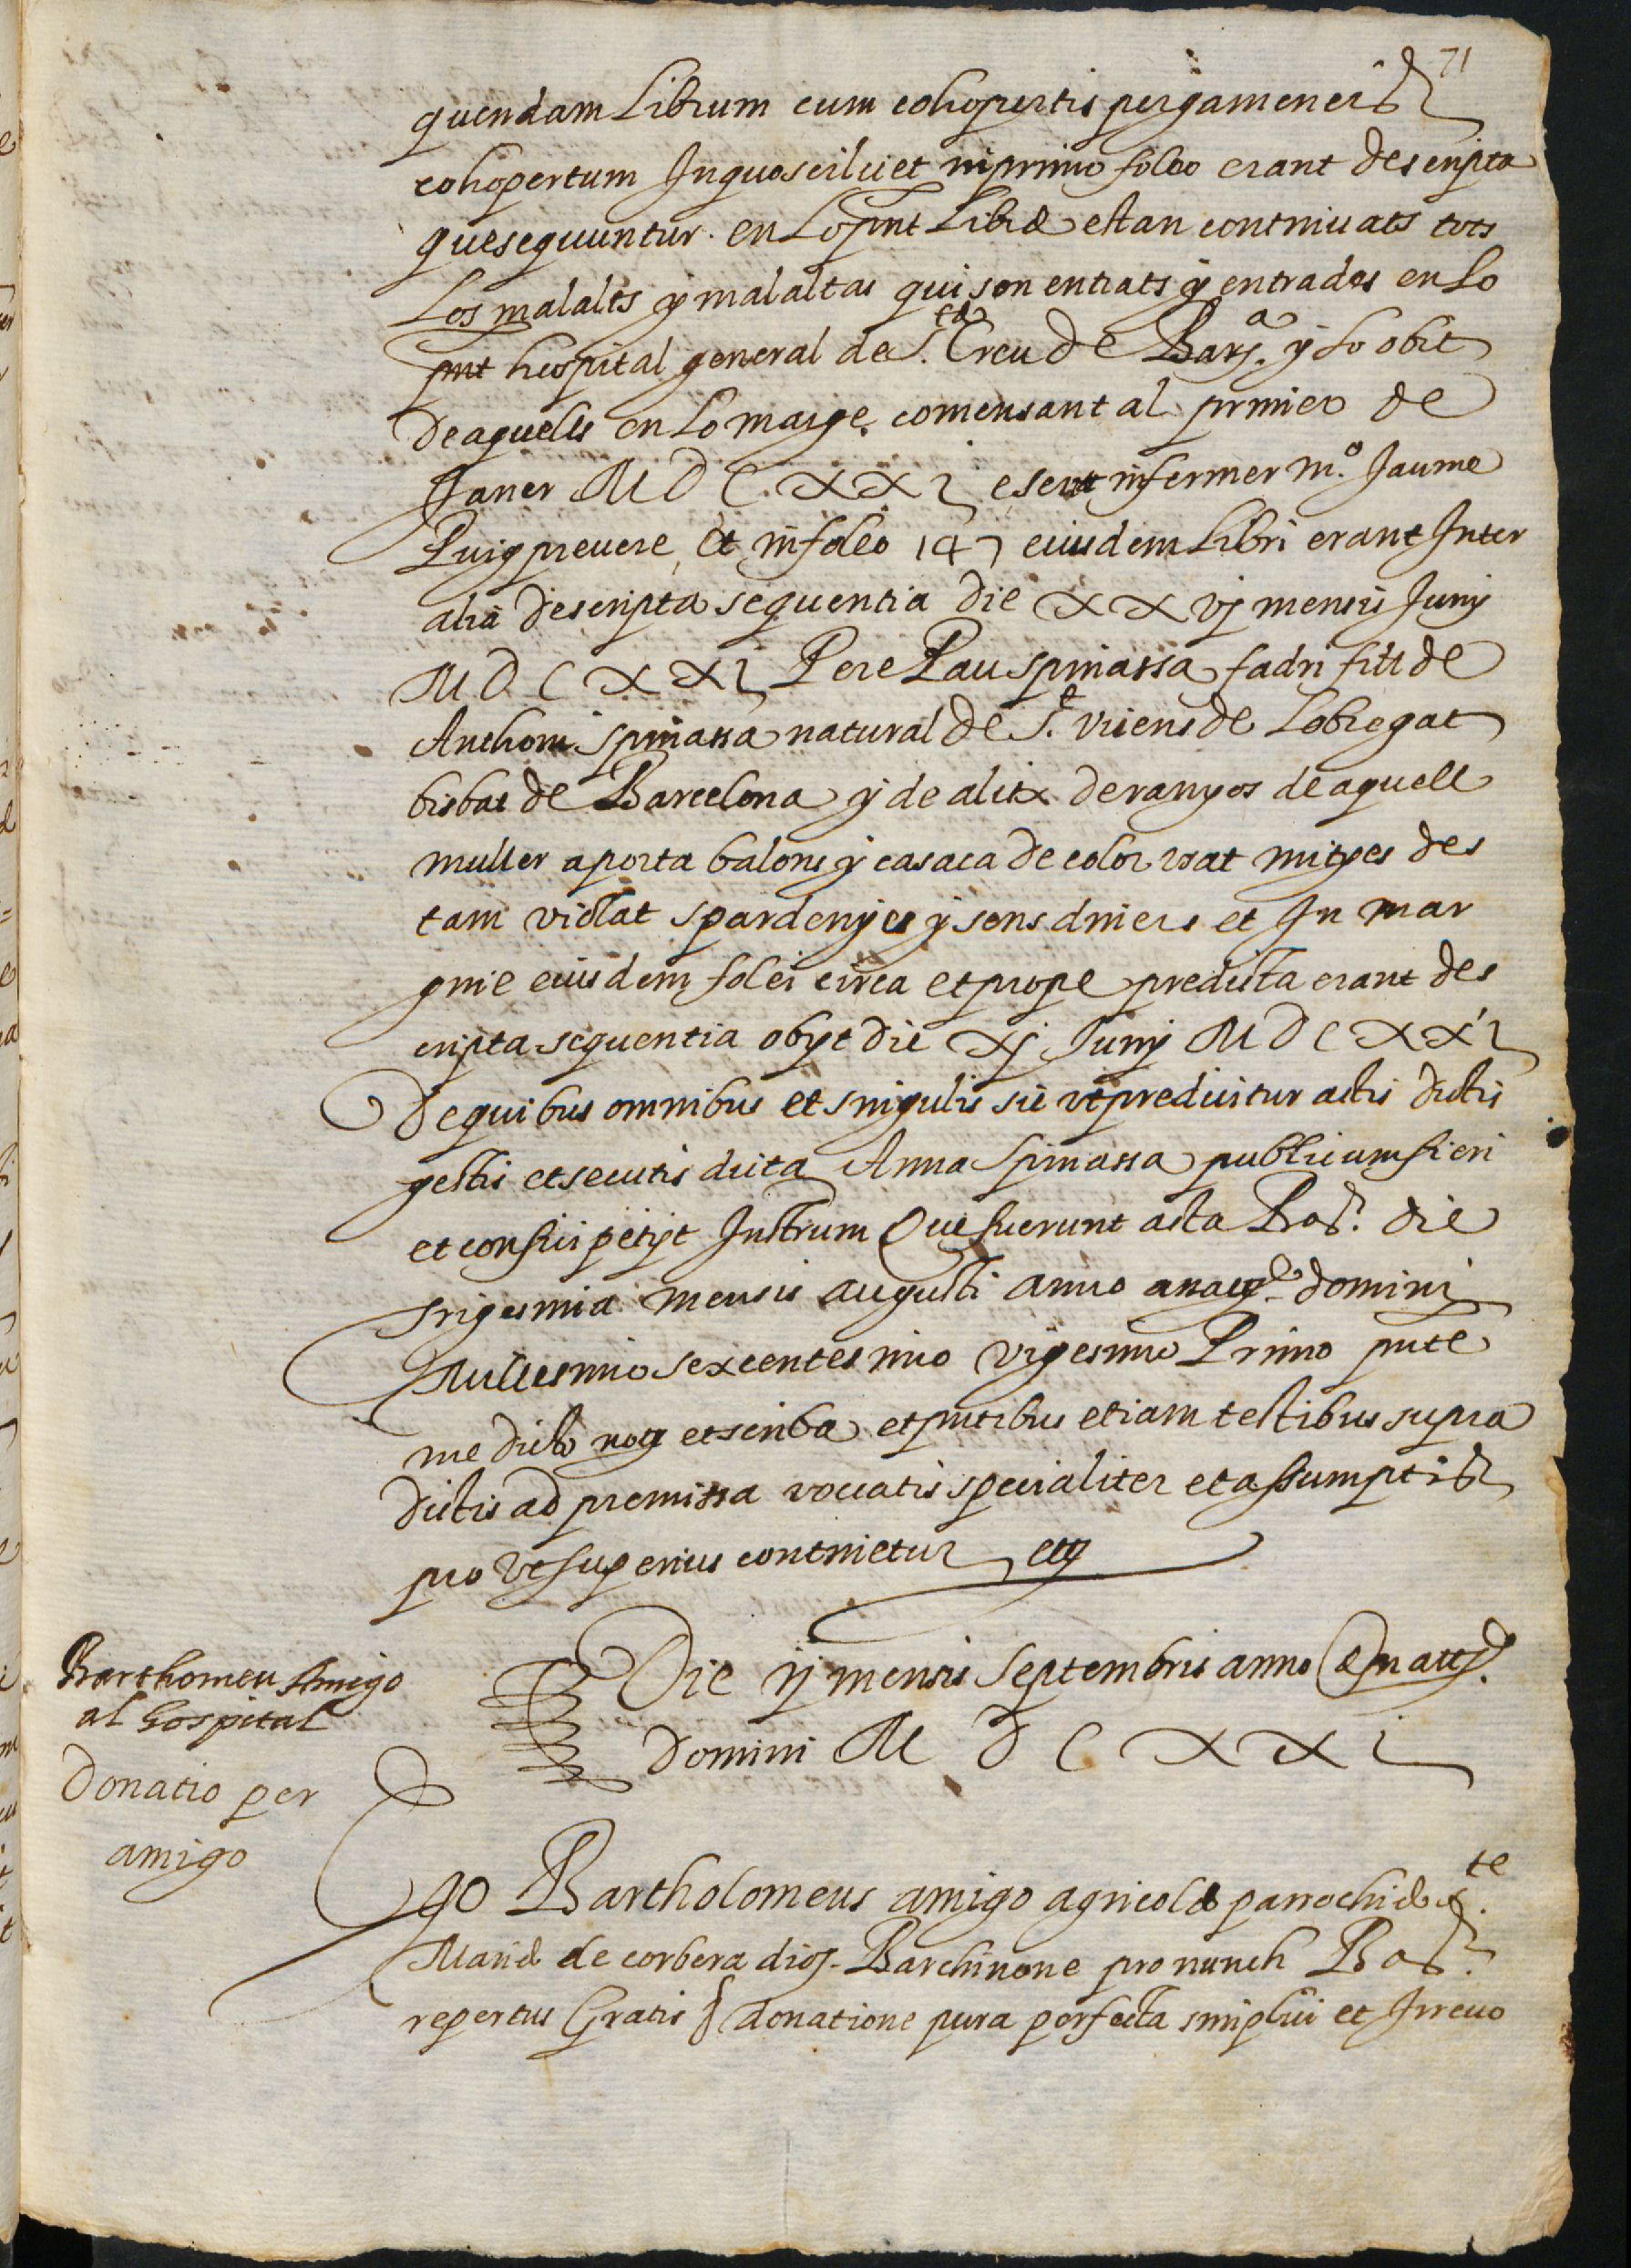 71
quendam Librum cum cohopertis pergameneis
cohopertum In quo scilicet in primo folio erant descripta
que sequuntur. en Lo pnt Libre estan continuats tots
Los malalts y malaltas qui son entrats y entrades en Lo
pnt hospital general de S.ta Creu de Barç.a y Lo obit
de aquells en Lo marge, comensant al primer de
Janer MDCXXI essent infermer m.o Jaume
Puig prevere, et in foleo 147 eiusdem Libri erant Inter
alia descripta sequentia die XXVj mensis Junij
MDCXXI Pere Pau Spinassa fadri fill de
Anthoni Spinassa natural de S.t Vicens de Lobregat
bisbat de Barcelona y de alix de ranyos de aquell
muller aporta balons y casaca de color usat mitges des
tam violat spardenyes y sens diners et In mar
gine eiusdem folei circa et prope predicta erant des
cripta sequentia obijt die XJ Junij MDCXXI
De quibus omnibus et singulis sic ut predicitur actis dictis
gestis et secutis dicta Anna Spinassa publicum fieri
et confici petijt Instrum Que fuerunt acta Bar. die
trigesima mensis augusti anno a natte domini
Millesimo sexcentesimo Vigesimo Primo pnte
me dicto nott et scriba et pntibus etiam testibus supra
dictis ad premissa vocatis specialiter et assumptis
pro ut superius continetur ett
Die ij mensis Septembris anno a natt.
Domini MDCXXI
Barthomeu Amigo
al hospital
Donatio per
amigo
Ego Bartholomeus amigo agricola parrochie S.te
Marie de corbera dios. Barchinone pro nunch Bar.
repertus Gratis & donatione pura perfecta simplici et Irrevo